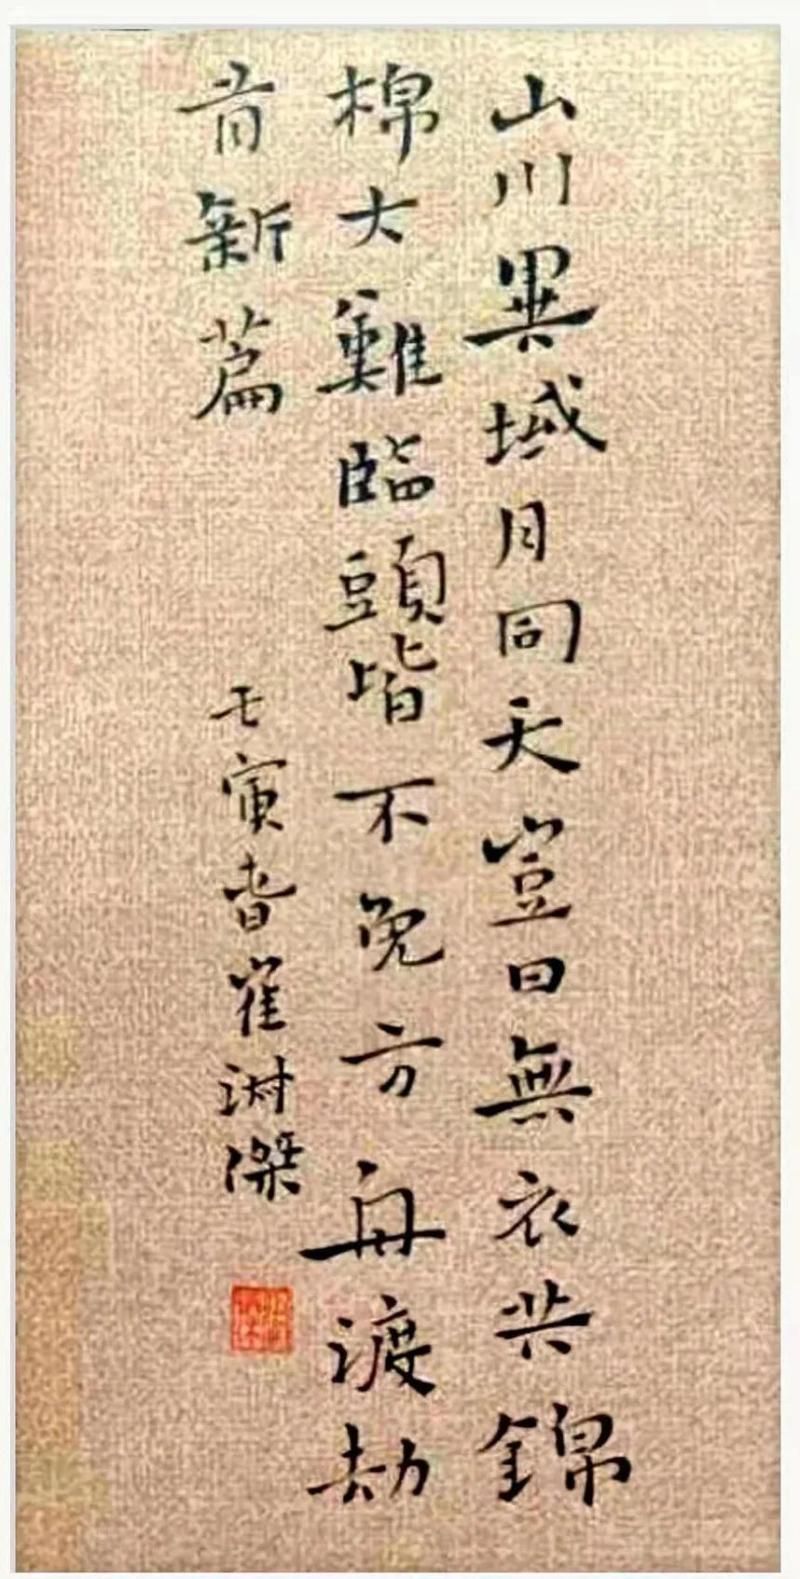 山川異域月同天豈曰無衣共錦
棉大難臨頭皆不免方舟渡劫
育新篇
壬寅春崔傑